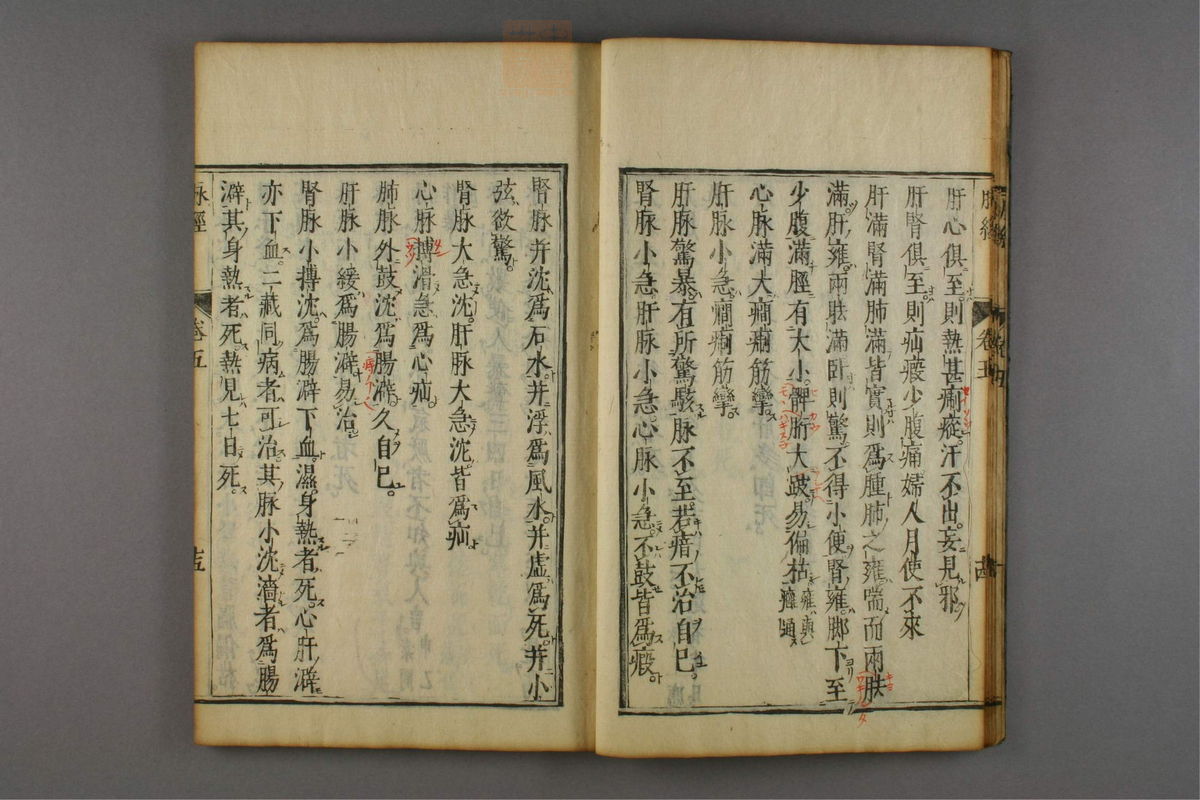 肝心俱至則熱甚瘈瘲汗不出妄見邪
肝腎俱至則疝瘕少腹痛婦人月使不來
肝滿腎滿肺滿皆實則爲腫肺之雍喘而兩胠
滿肝雍兩胠滿臥則驚不得小便腎雍脚下至
少腹滿脛有大小髀胻大跛易偏枯
心脉滿大癇瘈筋攣
肝脉小急癇瘈筋攣
肝脉驚暴有所驚駭脉不至若瘖不治自已
腎脉小急肝脉小急心脉小急不鼓皆爲瘕
腎脉并沈爲石水并浮爲風水并虛爲死并小
弦欲驚
腎脉大急沈肝脉大急沈皆爲疝
心脉搏滑急爲心疝
肺脉外鼓沈爲腸澼久自已
肝脉小緩爲腸澼易治
腎脉小搏沈爲腸澼下血濕身熱者死心肝澼
亦下血二藏同病者可治其脉小沈濇者爲腸
澼其身熱者死熱見七日死
脉經
卷五